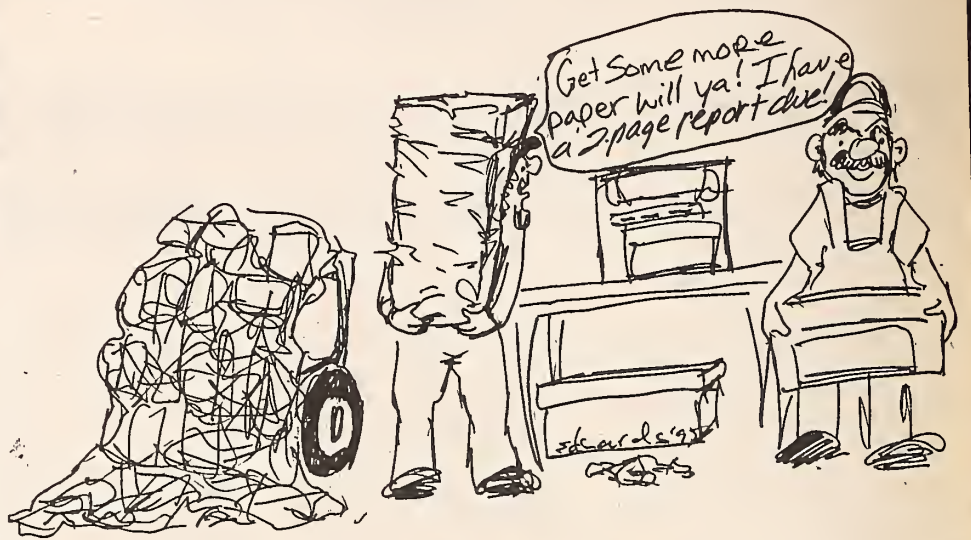 Get Some more
paper will ya! I have
a 2-page report due!
edwards '95